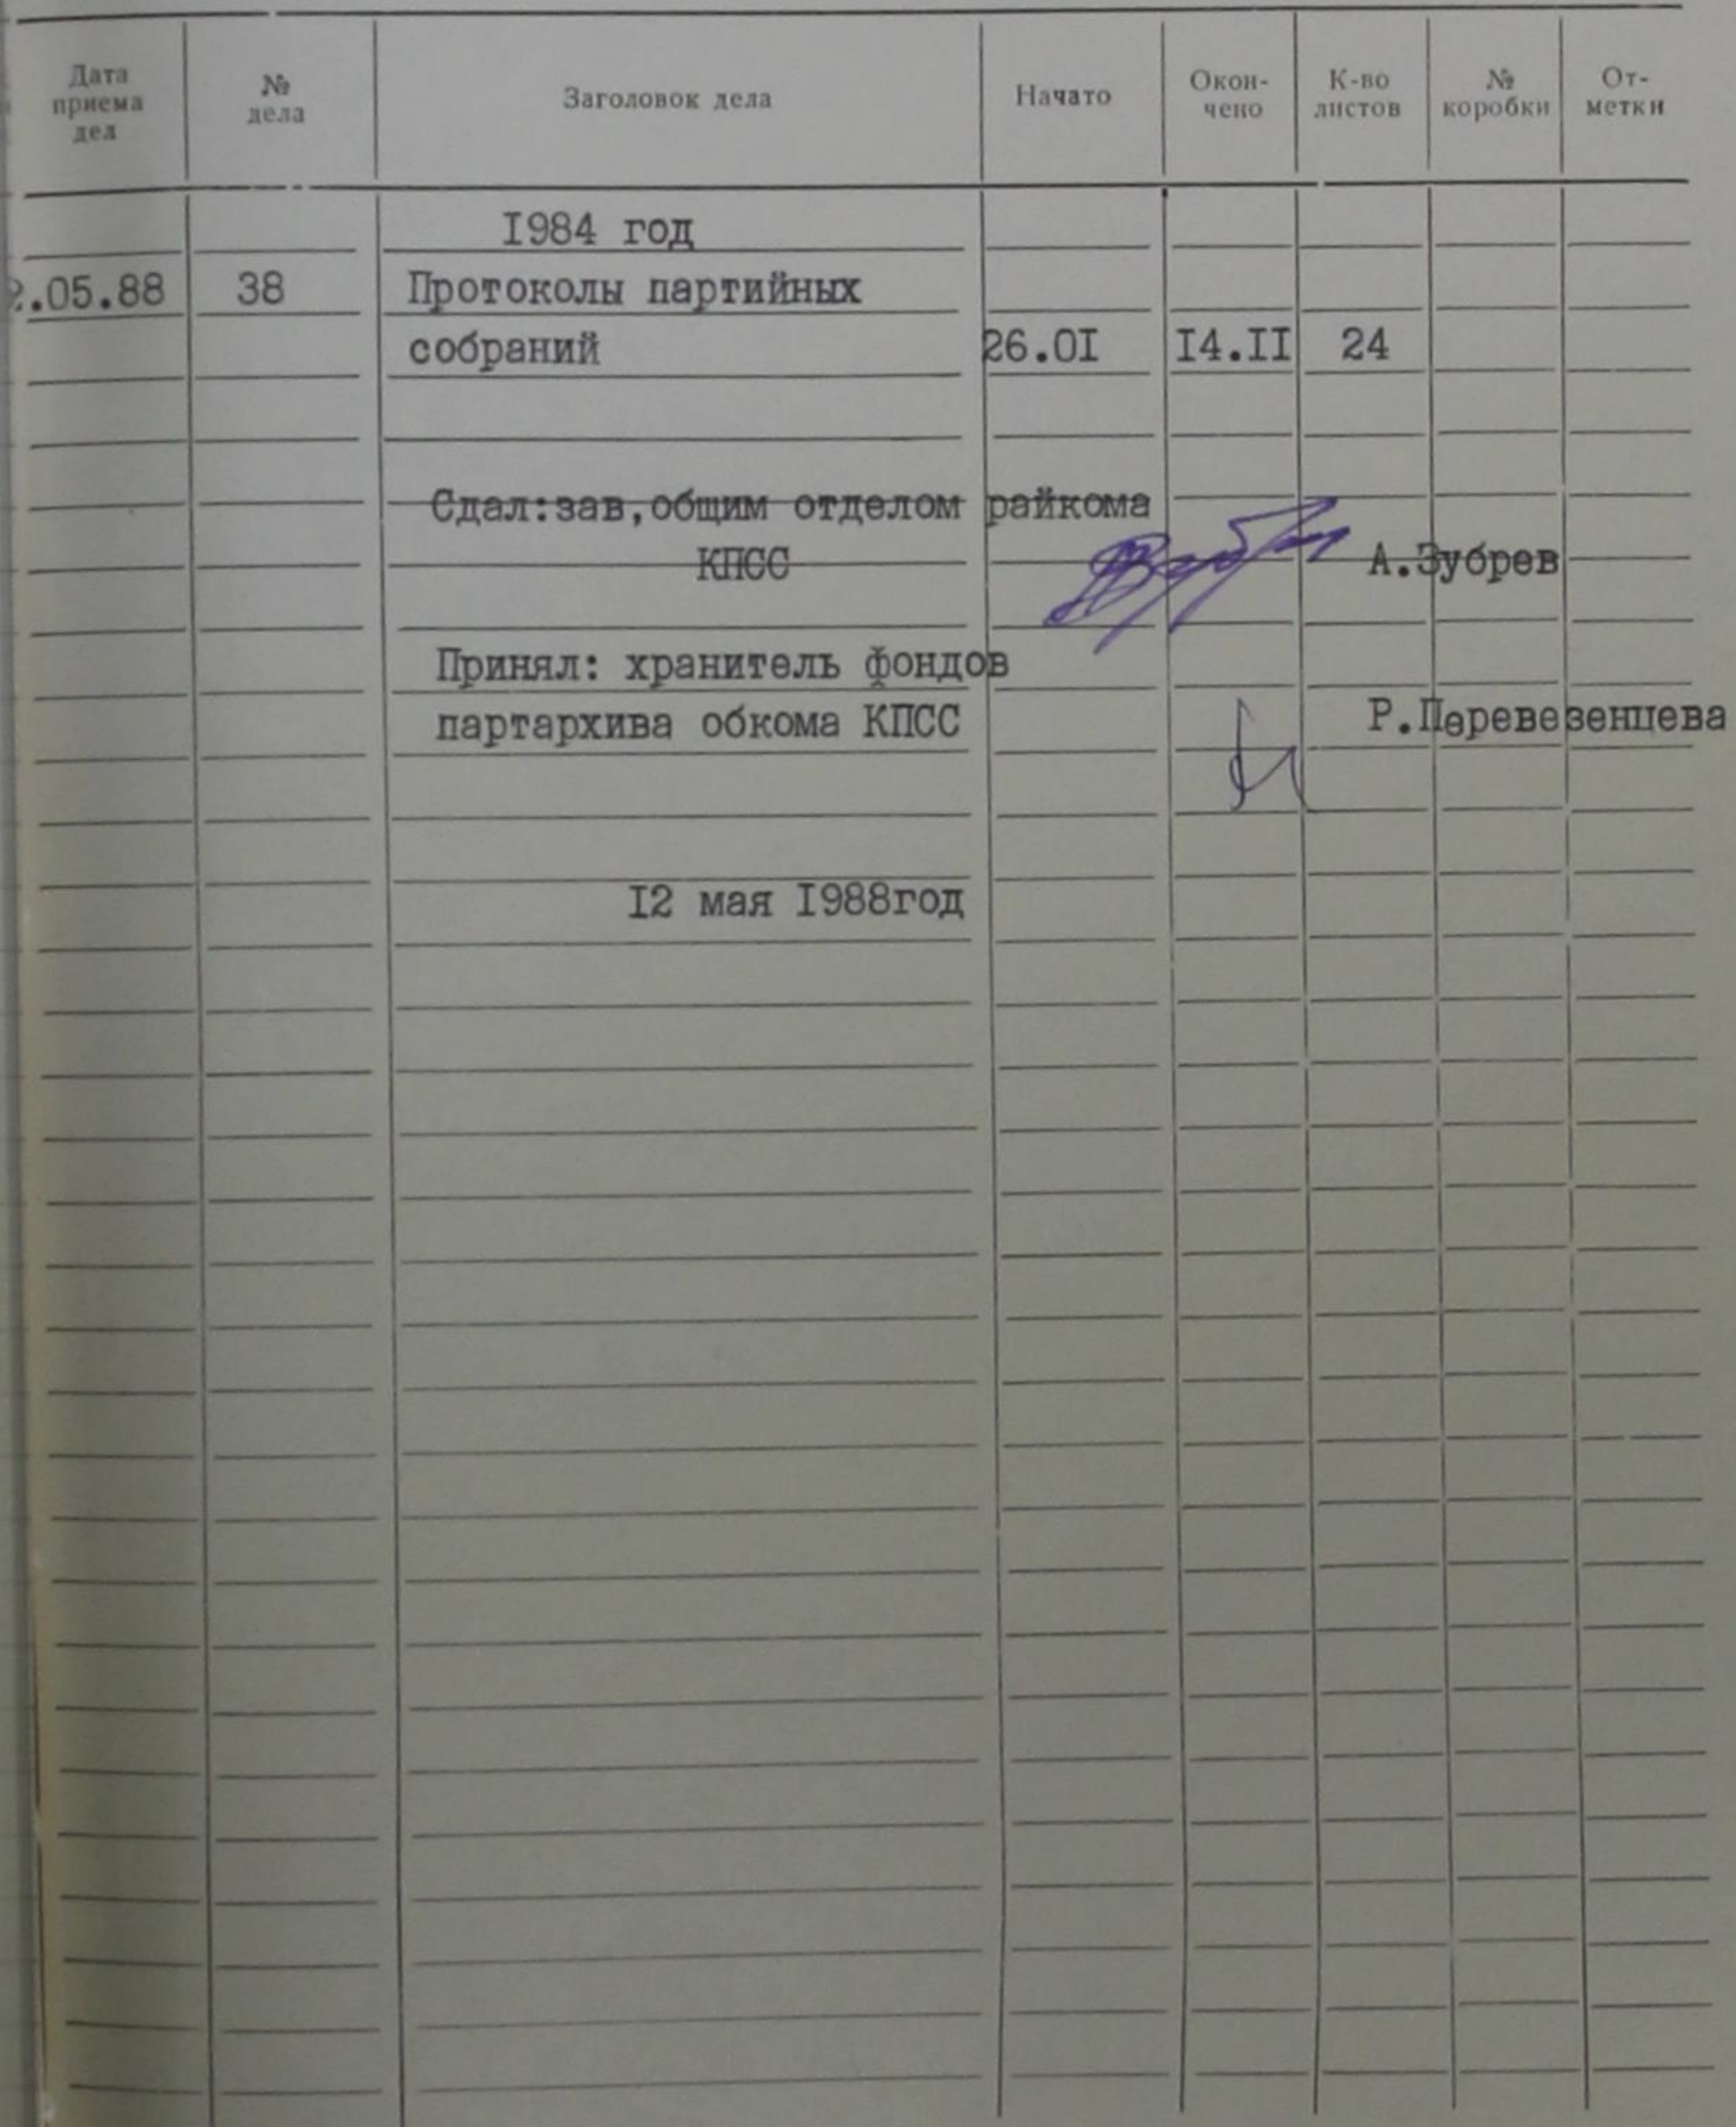 Дата приема дел № дела Заголовок дела Начато Окон-чено К-во листов № коробки От-метки
I984 год
2.05.88 38 Протоколы партийных
собраний 26.0I I4.II 24
Сдал:зав,общим отделом райкома
КПСС А.Зубрев
Принял: хранитель фондов
партархива обкома КПСС Р.Перевезенцева
I2 мая I988год